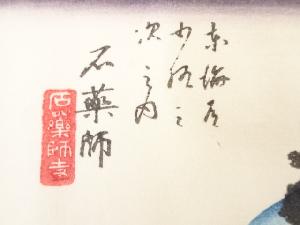 東海道
五拾三
次之内
石藥師
石藥師寺